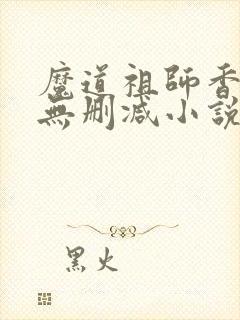 魔道祖師香
無刪减小說
黑火